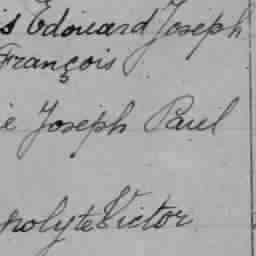 is Edouard Joseph
François
e Joseph Paul
polyte Victor